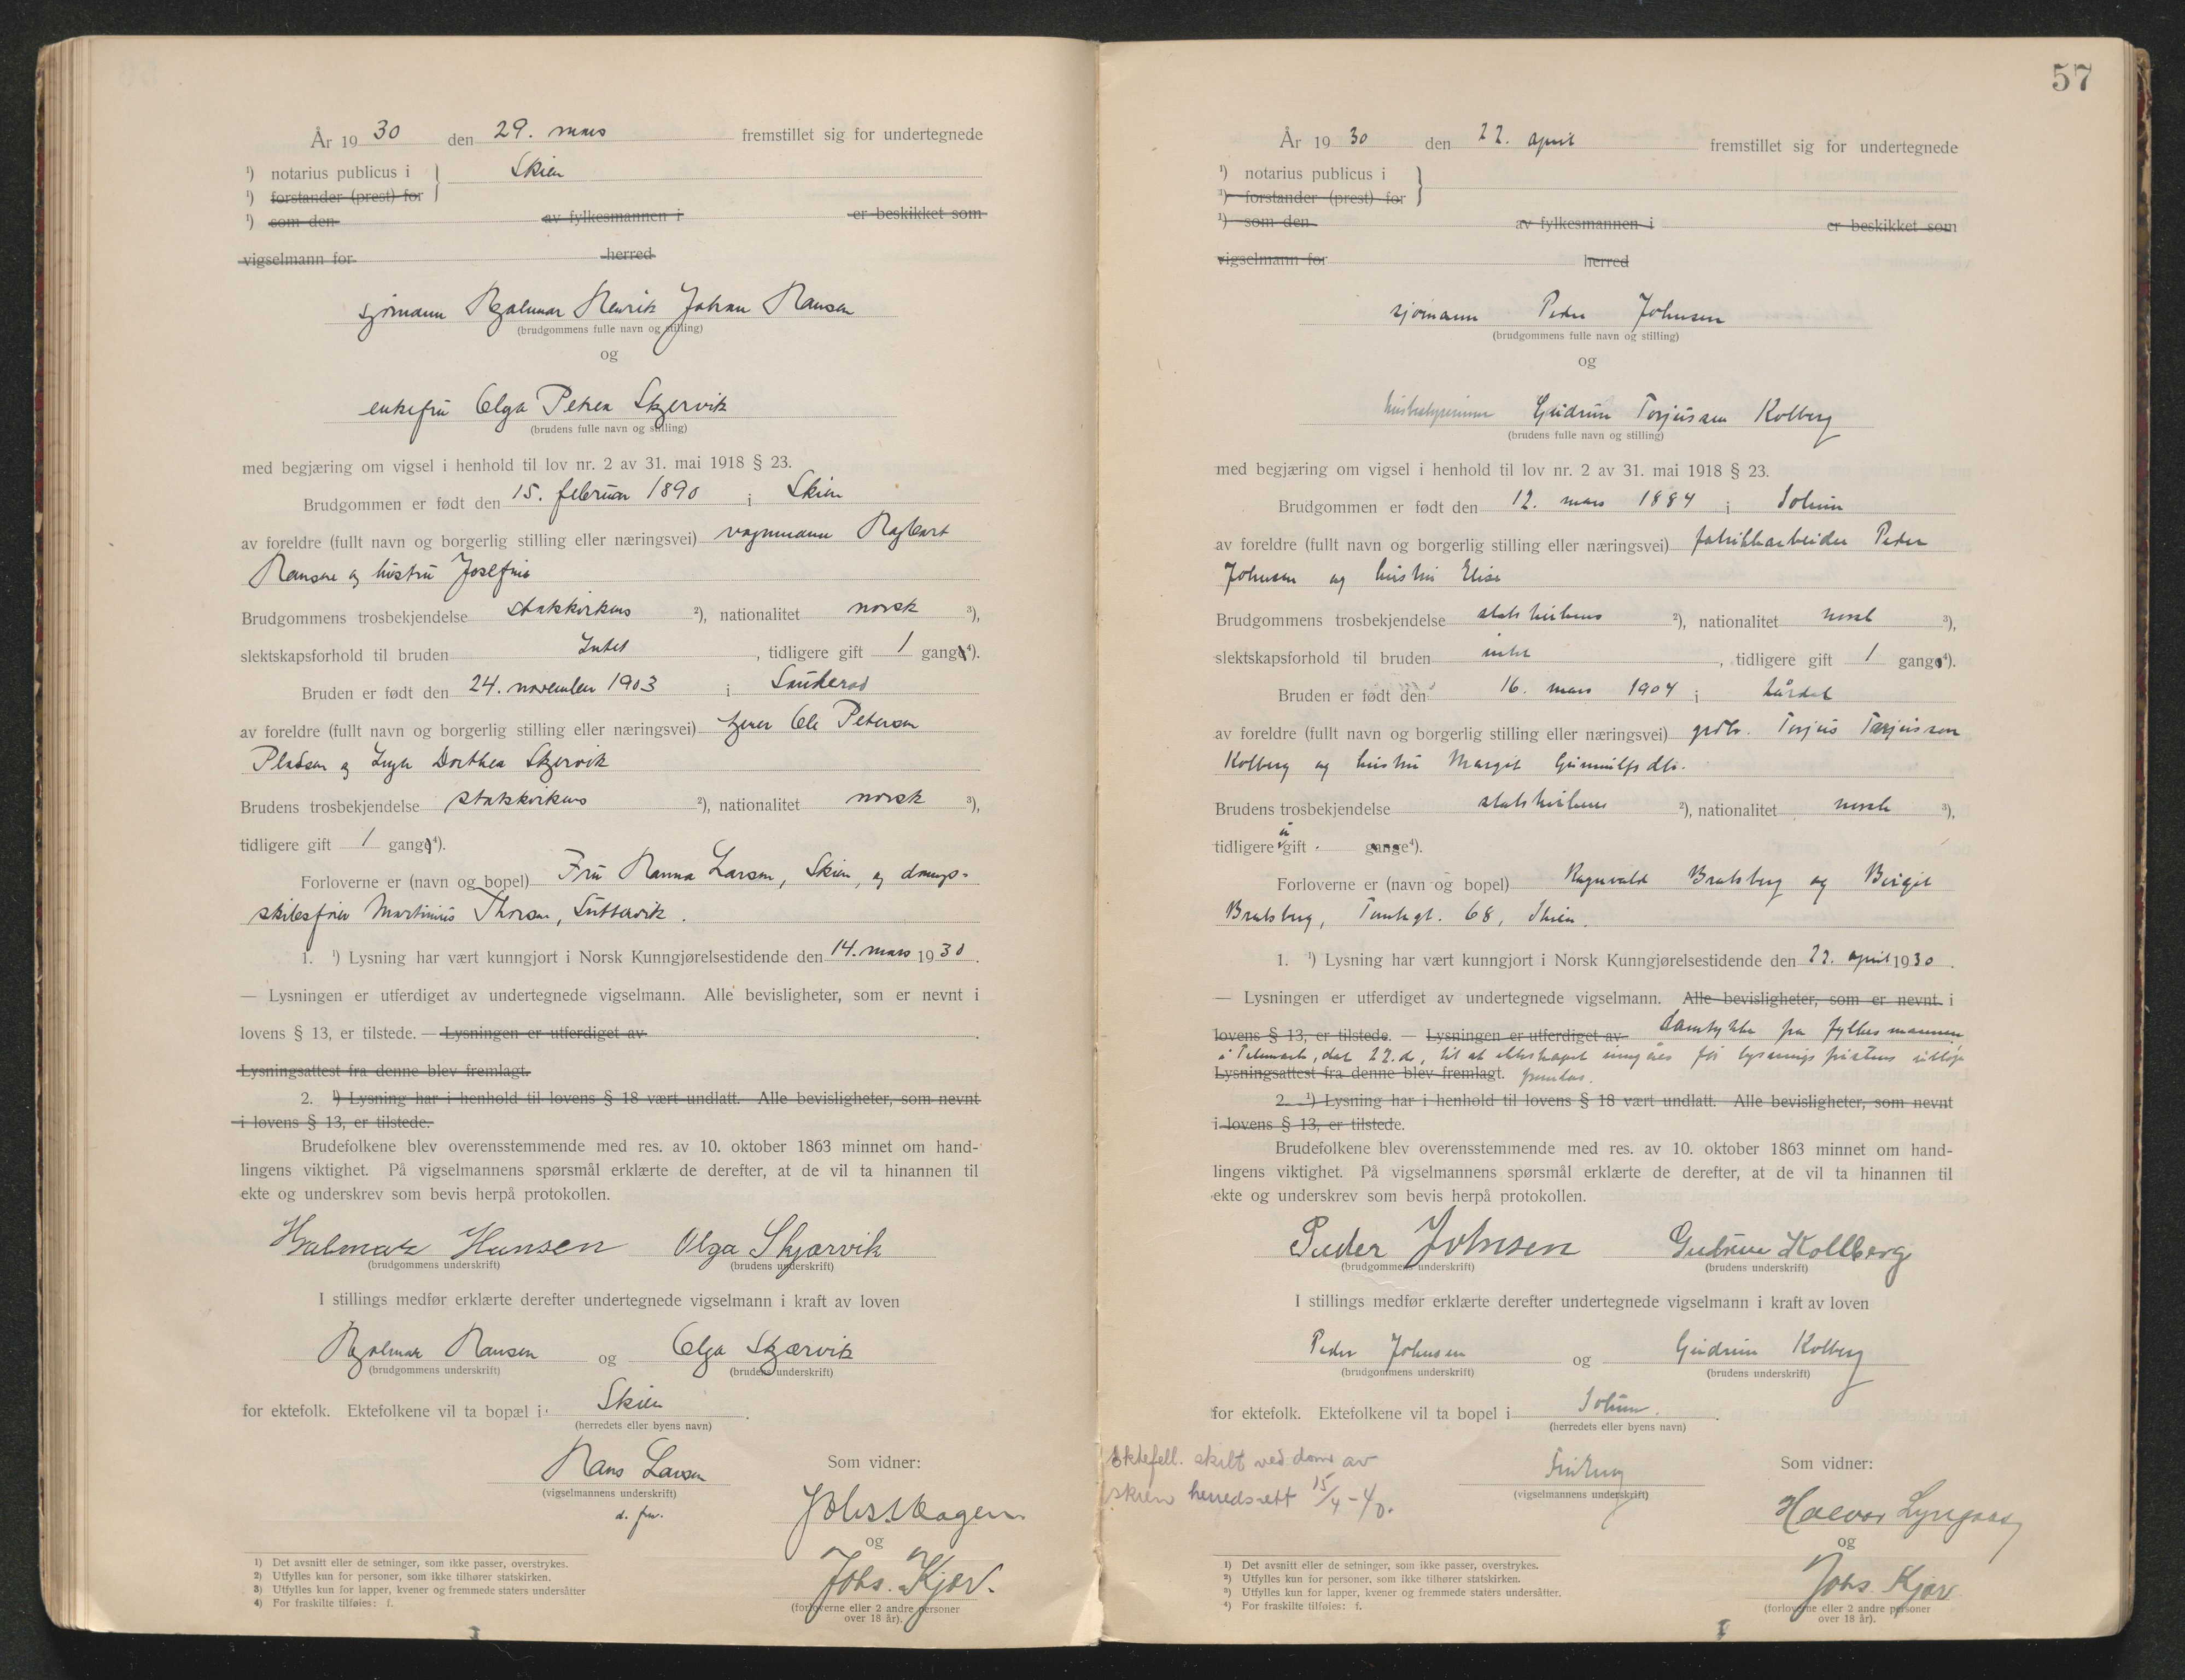 År 19 30 den 29. mars fremstillet sig for undertegnede
¹) notarius publicus i Skien
¹) forstander (prest) for
¹) som den av fylkesmannen i er beskikket som
vigselmann for herred
sjømann Hjalmar Henrik Johan Hansen
(brudgommens fulle navn og stilling)
og
enkefru Olga Petrea Skjervik
(brudens fulle navn og stilling)
med begjæring om vigsel i henhold til lov nr. 2 av 31. mai 1918 § 23.
Brudgommen er født den 15. februar 1890 i Skien
av foreldre (fullt navn og borgerlig stilling eller næringsvei) vognmann Hagbart
Hansen og hustru Josefine
Brudgommens trosbekjendelse statskirkens ²), nationalitet norsk ³),
slektskapsforhold til bruden Intet, tidligere gift 1 gang ⁴).
Bruden er født den 24. november 1903 i Sauherad
av foreldre (fullt navn og borgerlig stilling eller næringsvei) Ole Petersen
Pladsen og Inga Dorthea Skjervik
Brudens trosbekjendelse statskirkens ²), nationalitet norsk ³),
tidligere gift 1 gang ⁴).
Forloverne er (navn og bopel) Fru Hanna Larsen, Skien, og damp-
skibsfører Martinius Thorsen,
1. ¹) Lysning har vært kunngjort i Norsk Kunngjørelsestidende den 14. mars 1930.
— Lysningen er utferdiget av undertegnede vigselmann. Alle bevisligheter, som er nevnt i
lovens § 13, er tilstede. — Lysningen er utferdiget av
Lysningsattest fra denne blev fremlagt.
2. ¹) Lysning har i henhold til lovens § 18 vært undlatt. Alle bevisligheter, som nevnt
i lovens § 13, er tilstede.
Brudefolkene blev overensstemmende med res. av 10. oktober 1863 minnet om hand-
lingens viktighet. På vigselmannens spørsmål erklærte de derefter, at de vil ta hinannen til
ekte og underskrev som bevis herpå protokollen.
Hjalmar Hansen Olga Skjærvik
(brudgommens underskrift) (brudens underskrift)
I stillings medfør erklærte derefter undertegnede vigselmann i kraft av loven
Hjalmar Hansen og Olga Skjærvik
(brudgommens underskrift) (brudens underskrift)
for ektefolk. Ektefolkene vil ta bopæl i Skien.
(herredets eller byens navn)
Hans Larsen Som vidner:
(vigselmannens underskrift)
Johs. Hagen
og
Johs. Kjær.
(forloverne eller 2 andre personer
over 18 år).
1) Det avsnitt eller de setninger, som ikke passer, overstrykes.
2) Utfylles kun for personer, som ikke tilhører statskirken.
3) Utfylles kun for lapper, kvener og fremmede staters undersåtter
4) For fraskilte tilføies: f.
57
År 19 30 den 22. april fremstillet sig for undertegnede
¹) notarius publicus i
¹) forstander (prest) for
¹) som den av fylkesmannen i er beskikket som
vigselmann for herred
sjømann Peder Johnsen
(brudgommens fulle navn og stilling)
og
husbestyrerinne Gudrun Torjussen Kolberg
(brudens fulle navn og stilling)
med begjæring om vigsel i henhold til lov nr. 2 av 31. mai 1918 § 23.
Brudgommen er født den 12. mars 1884 i Solum
av foreldre (fullt navn og borgerlig stilling eller næringsvei) fabrikkarbeider Peder
Johnsen og hustru Elise
Brudgommens trosbekjendelse statskirkens ²), nationalitet norsk ³),
slektskapsforhold til bruden intet, tidligere gift 1 gang ⁴).
Bruden er født den 16. mars 1904 i Lårdal
av foreldre (fullt navn og borgerlig stilling eller næringsvei) grdbr. Torjus Torjussen
Kolberg og hustru Margit Gunnulfsdtr.
Brudens trosbekjendelse statskirkens ²), nationalitet norsk ³),
tidligere ugift gange ⁴).
Forloverne er (navn og bopel) Ragnvald Bratsberg og Birgit
Bratsberg, 68, Skien.
1. ¹) Lysning har vært kunngjort i Norsk Kunngjørelsestidende den 22. april 1930.
— Lysningen er utferdiget av undertegnede vigselmann. Alle bevisligheter, som er nevnt i
lovens § 13, er tilstede. — Lysningen er utferdiget av Samtykke fra fylkesmannen
i Telemark, dat 22. ds, til at ekteskapet inngåes før lysningsfristens utløp
Lysningsattest fra denne blev fremlagt. foreligger.
2. ¹) Lysning har i henhold til lovens § 18 vært undlatt. Alle bevisligheter, som nevnt
i lovens § 13, er tilstede.
Brudefolkene blev overensstemmende med res. av 10. oktober 1863 minnet om hand-
lingens viktighet. På vigselmannens spørsmål erklærte de derefter, at de vil ta hinannen til
ekte og underskrev som bevis herpå protokollen.
Peder Johnsen Gudrun Kollberg
(brudgommens underskrift) (brudens underskrift)
I stillings medfør erklærte derefter undertegnede vigselmann i kraft av loven
Peder Johnsen og Gudrun Kolberg
(brudgommens underskrift) (brudens underskrift)
for ektefolk. Ektefolkene vil ta bopel i Solum.
(herredets eller byens navn)
Ektefell. skilt ved dom av
Skien herredsrett 15/4-40.
Som vidner:
(vigselmannens underskrift)
Halvor Lyngaas
og
Johs Kjær
(forloverne eller 2 andre personer
over 18 år).
1) Det avsnitt eller de setninger, som ikke passer, overstrykes.
2) Utfylles kun for personer, som ikke tilhører statskirken.
3) Utfylles kun for lapper, kvener og fremmede staters undersåtter.
4) For fraskilte tilføies: f.